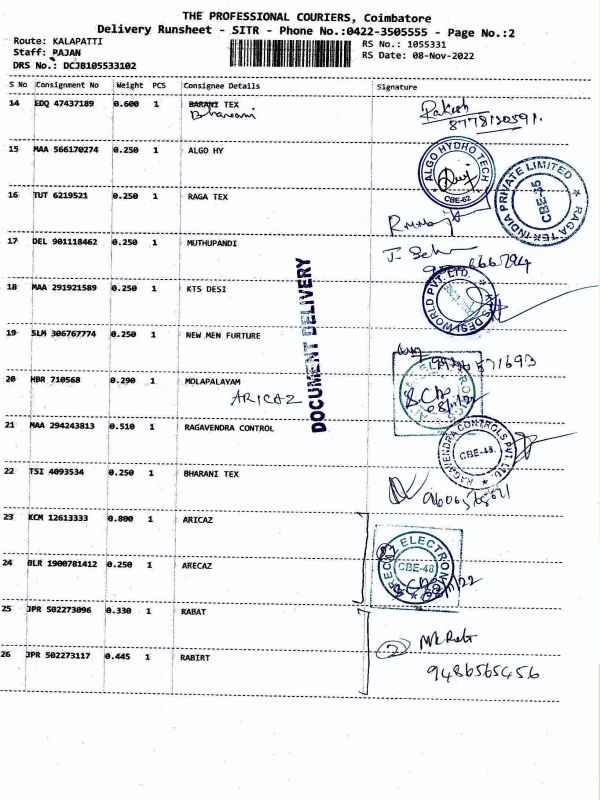 THE PROFESSIONAL COURIERS, Coimbatore
Delivery Runsheet - SITR - Phone No.:0422-3505555 - Page No.:2
Route: KALAPATTI
Staff: RAJAN
DRS No.: DCJB105533102
RS No.: 1055331
RS Date: 08-Nov-2022
S No Consignment No Weight PCS Consignee Details Signature
14 EDQ 47437189 0.600 1 BARANI TEX
Bharani
Rakesh
8778120591.
15 MAA 566170274 0.250 1 ALGO HY
ALGO HYDRO TECH
CBE-62
16 TUT 6219521 0.250 1 RAGA TEX
RAGA TEX INDIA PRIVATE LIMITED
CBE-35
17 DEL 901118462 0.250 1 MUTHUPANDI
18 MAA 291921589 0.250 1 KTS DESI
KTS DESI WORLD PVT. LTD.
DOCUMENT DELIVERY
19 SLM 306767774 0.250 1 NEW MEN FURTURE
20 HBR 710568 0.290 1 MOLAPALAYAM
ARICAZ
08/11/22
21 MAA 294243813 0.510 1 RAGAVENDRA CONTROL
RAGAVENDRA CONTROLS PVT. LTD.
22 TSI 4093534 0.250 1 BHARANI TEX
23 KCM 12613333 0.800 1 ARICAZ
24 BLR 1900781412 0.250 1 ARECAZ
ARECAZ ELECTRON
CBE-48
25 JPR 502273096 0.330 1 RABAT
26 JPR 502273117 0.445 1 RABIRT
2
9486565456